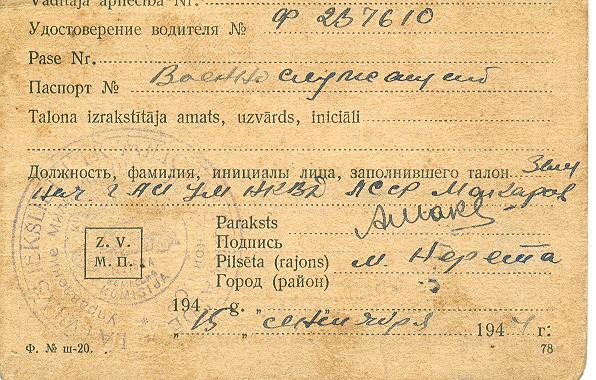 Vadītāja apliecība Nr.
Удостоверение водителя № Ф 237610
Pase Nr.
Паспорт № Военнослужащий
Talona izrakstītāja amats, uzvārds, iniciāli
Должность, фамилия, инициалы лица, заполнившего талон Зам
нач. ГАИ УМ НКВД ЛССР Макаров
Paraksts
Подпись
Z. V.
М. П.
Pilsēta (rajons) м. Нерета
Город (район)
194 g. „
„ 15 „ сентября 194 4 г:
Ф. № ш-20. 78